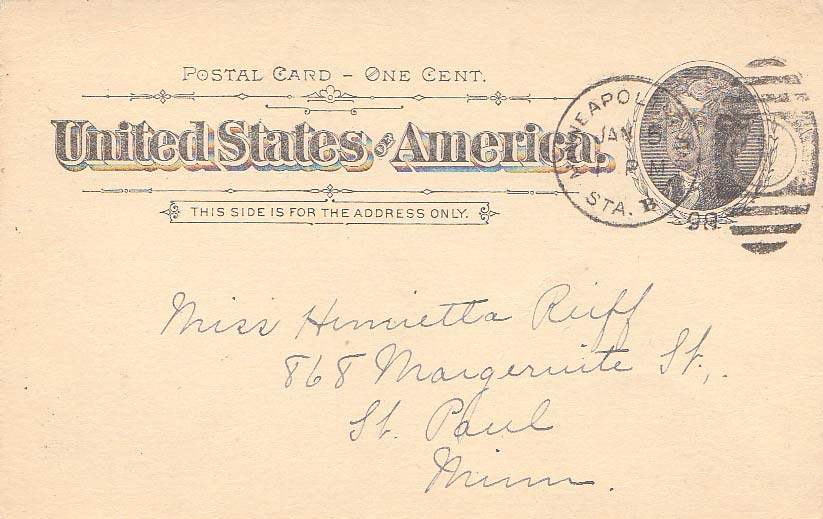 POSTAL CARD – ONE CENT.
United States of America.
THIS SIDE IS FOR THE ADDRESS ONLY.
JAN
STA. B
98
Miss Henrietta Reiff
868 Margeruite St.,
St. Paul
Minn.